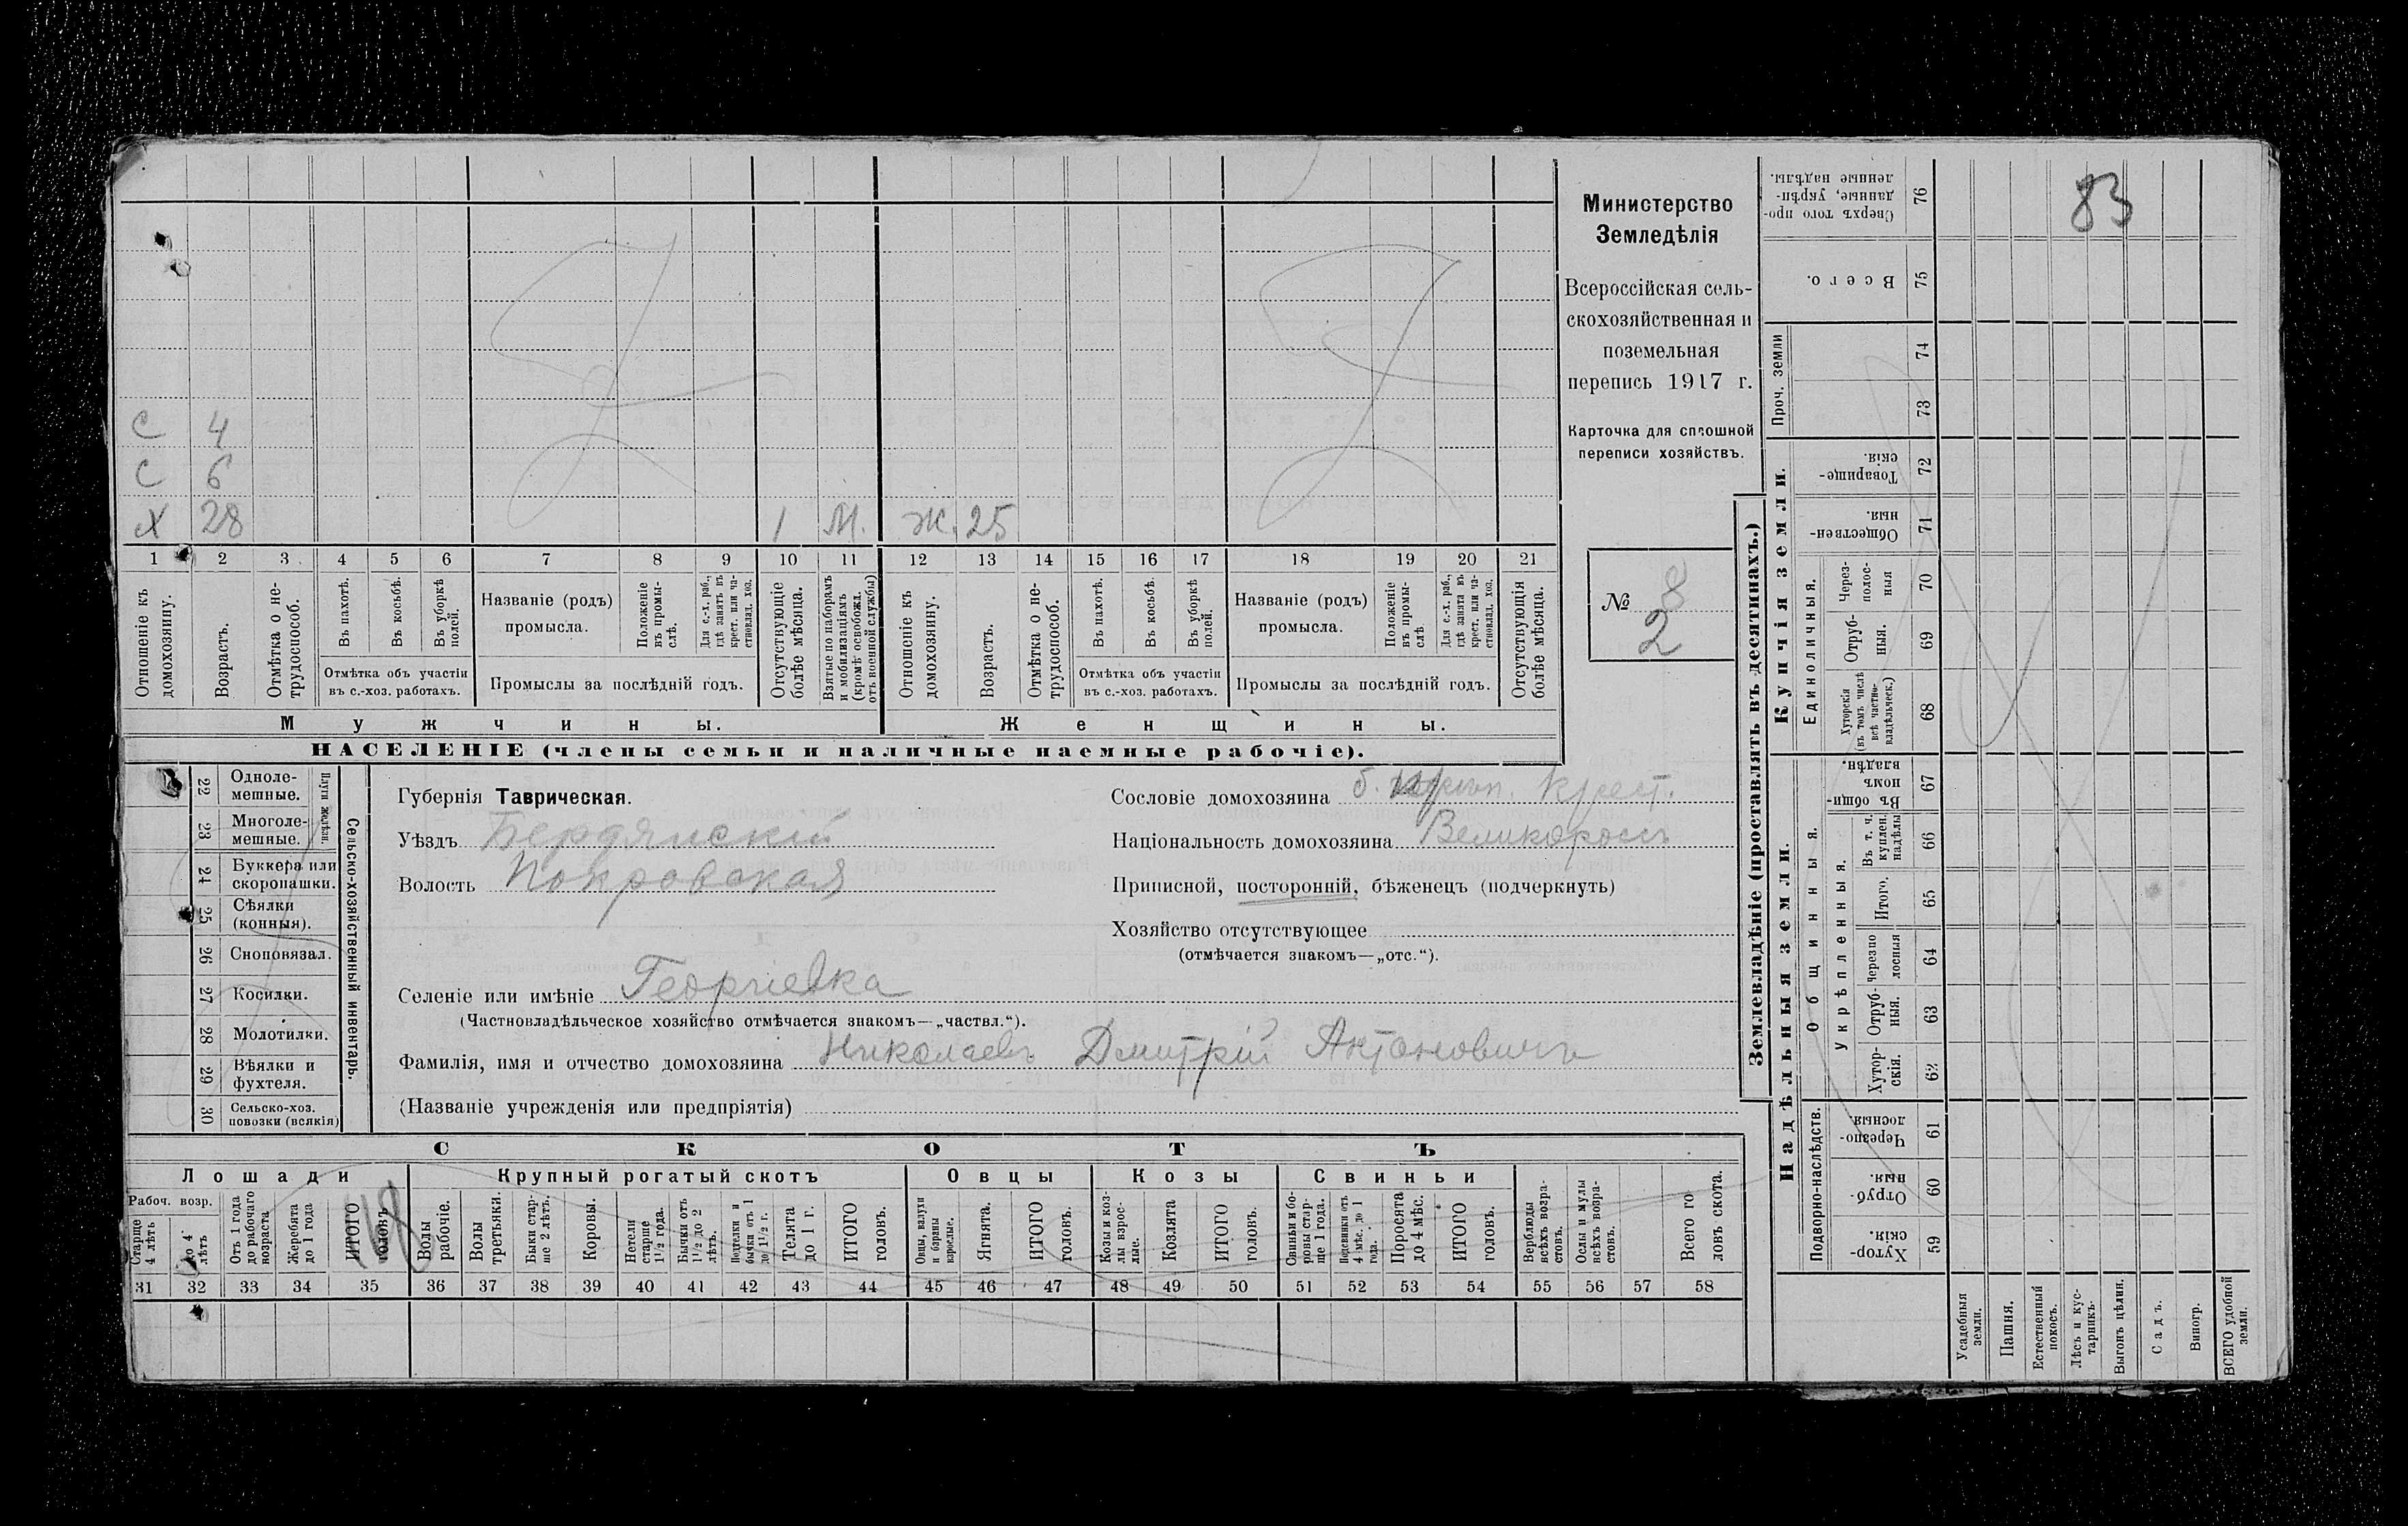 83
Министерство
Земледѣлія
Всероссійская сель-
скохозяйственная и
поземельная
перепись 1917 г.
Карточка для сплошной
переписи хозяйствъ.
№ 8
2
С 4
С 6
Х 28 1 М. Ж. 25
1 2 3 4 5 6 7 8 9 10 11 12 13 14 15 16 17 18 19 20 21
Отношеніе къ домохозяину.
Возрастъ.
Отмѣтка о не-трудоспособ.
Въ пахотѣ.
Въ косьбѣ.
Въ уборкѣ полей.
Отмѣтка объ участіи
въ с.-хоз. работахъ.
Названіе (родъ)
промысла.
Положеніе въ промы-слѣ.
Для с.-х. раб., гдѣ занятъ въ крест. или ча-стновлад. хоз.
Промыслы за послѣдній годъ.
Отсутствующіе болѣе мѣсяца.
Взятые по наборамъ и мобилизаціямъ (кромѣ освобожд. отъ военной службы)
Отношеніе къ домохозяину.
Возрастъ.
Отмѣтка о не-трудоспособ.
Въ пахотѣ.
Въ косьбѣ.
Въ уборкѣ полей.
Отмѣтка объ участіи
въ с.-хоз. работахъ.
Названіе (родъ)
промысла.
Положеніе въ промы-слѣ
Для с.-х. раб., гдѣ занята въ крест. или ча-стновлад. хоз.
Промыслы за послѣдній годъ.
Отсутствующія болѣе мѣсяца.
Мужчины.
Женщины.
НАСЕЛЕНІЕ (члены семьи и наличные наемные рабочіе).
Сельско-хозяйственный инвентарь.
Плуги желѣзн.
22 Одноле-
мешные.
23 Многоле-
мешные.
24 Буккера или
скоропашки.
25 Сѣялки
(конныя).
26 Сноповязал.
27 Косилки.
28 Молотилки.
29 Вѣялки и
фухтеля.
30 Сельско-хоз.
повозки (всякія)
Губернія Таврическая.
Уѣздъ Бердянскій
Волость Покровская
Сословіе домохозяина б. Крест.
Національность домохозяина Великороссъ
Приписной, посторонній, бѣженецъ (подчеркнуть)
Хозяйство отсутствующее
(отмѣчается знакомъ—„отс.“).
Селеніе или имѣніе Георгіевка
(Частновладѣльческое хозяйство отмѣчается знакомъ—„частвл.“).
Фамилія, имя и отчество домохозяина Николаевъ Дмитрій Антоновичъ
(Названіе учрежденія или предпріятія)
СКОТЪ
Лошади
Крупный рогатый скотъ
Овцы
Козы
Свиньи
Рабоч. возр.
Старше 4 лѣтъ
До 4 лѣтъ
Отъ 1 года до рабочаго возраста
Жеребята до 1 года
ИТОГО головъ
Волы рабочіе.
Волы третьяки.
Быки стар-ше 2 лѣтъ.
Коровы.
Нетели старше 1½ года.
Бычки отъ 1½ до 2 лѣтъ.
Подтелки и бычки отъ 1 до 1½ г.
Телята до 1 г.
ИТОГО головъ.
Овцы, валухи и бараны взрослые.
Ягнята.
ИТОГО головъ.
Козы и коз-лы взрос-лые.
Козлята
ИТОГО головъ.
Свиньи и бо-ровы стар-ше 1 года.
Подсвинки отъ 4 мѣс. до 1 года.
Поросята до 4 мѣс.
ИТОГО головъ.
Верблюды всѣхъ возра-стовъ.
Ослы и мулы всѣхъ возра-стовъ.
Всего го-ловъ скота.
31 32 33 34 35 36 37 38 39 40 41 42 43 44 45 46 47 48 49 50 51 52 53 54 55 56 57 58
Землевладѣніе (проставлять въ десятинахъ.)
Надѣльныя земли.
Купчія земли.
Проч. земли
Подворно-наслѣдств.
Общинныя.
Укрѣпленныя.
Единоличныя.
Хутор-скія. 59
Отруб-ныя. 60
Черезпо-лосныя. 61
Хутор-скія. 62
Отруб-ныя. 63
Черезпо-лосныя 64
Итого. 65
Въ т. ч. куплен. надѣлы 66
Въ общин-номъ владѣн. 67
Хуторскія (въ томъ числѣ всѣ частно-владѣльческ.) 68
Отруб-ныя. 69
Через-полос-ныя 70
Обществен-ныя. 71
Товарище-скія. 72
73
74
Всего. 75
Сверхъ того про-данные, укрѣп-ленные надѣлы. 76
Усадебныя земли.
Пашня.
Естественный покосъ.
Лѣсъ и кус-тарникъ.
Выгонъ цѣлин.
Садъ.
Виногр.
ВСЕГО удобной земли.